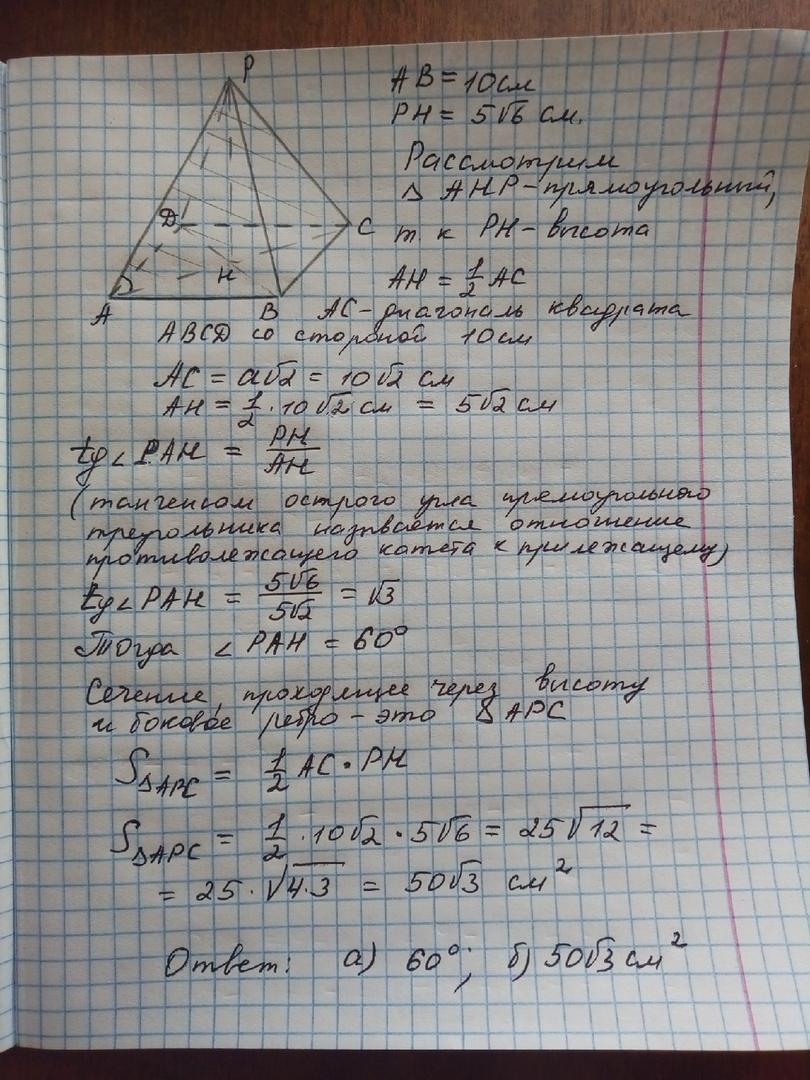 P
D
C
H
A
B
AB = 10 см
PH = 5√6 см.
Рассмотрим
△ AHP - прямоугольный,
т. к PH - высота
AH = 1/2 AC
AC - диагональ квадрата
ABCD со стороной 10 см
AC = a√2 = 10√2 см
AH = 1/2 · 10√2 см = 5√2 см
tg∠PAH = PH/AH
(тангенсом острого угла прямоугольного
треугольника называется отношение
противолежащего катета к прилежащему)
tg∠PAH = 5√6/5√2 = √3
Тогда ∠PAH = 60°
Сечение, проходящее через высоту
и боковое ребро - это △APC
S△APC = 1/2 AC · PH
S△APC = 1/2 · 10√2 · 5√6 = 25√12 =
= 25 · √4·3 = 50√3 см²
Ответ: а) 60°; б) 50√3 см²